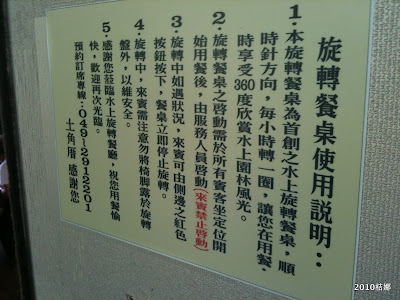 旋轉餐桌使用說明：
1.本旋轉餐桌為首創之水上旋轉餐桌，順
時針方向，每小時轉一圈，讓您在用餐‧
時享受360度欣賞水上園林風光。
2.旋轉餐桌之啓動需於所有賓客坐定位開
始用餐後，由服務人員啓動(來賓禁止啓動)
3.旋轉中如遇狀況，來賓可由側邊之紅色
按鈕按下，餐桌立即停止旋轉。
4.旋轉中，來賓需注意勿將椅脚露於旋轉
盤外，以維安全。
5.感謝您蒞臨水上旋轉餐廳，祝您用餐愉
快，歡迎再次光臨。
預約訂席專線：049-2912201
土角厝 感謝您
2010桔娜